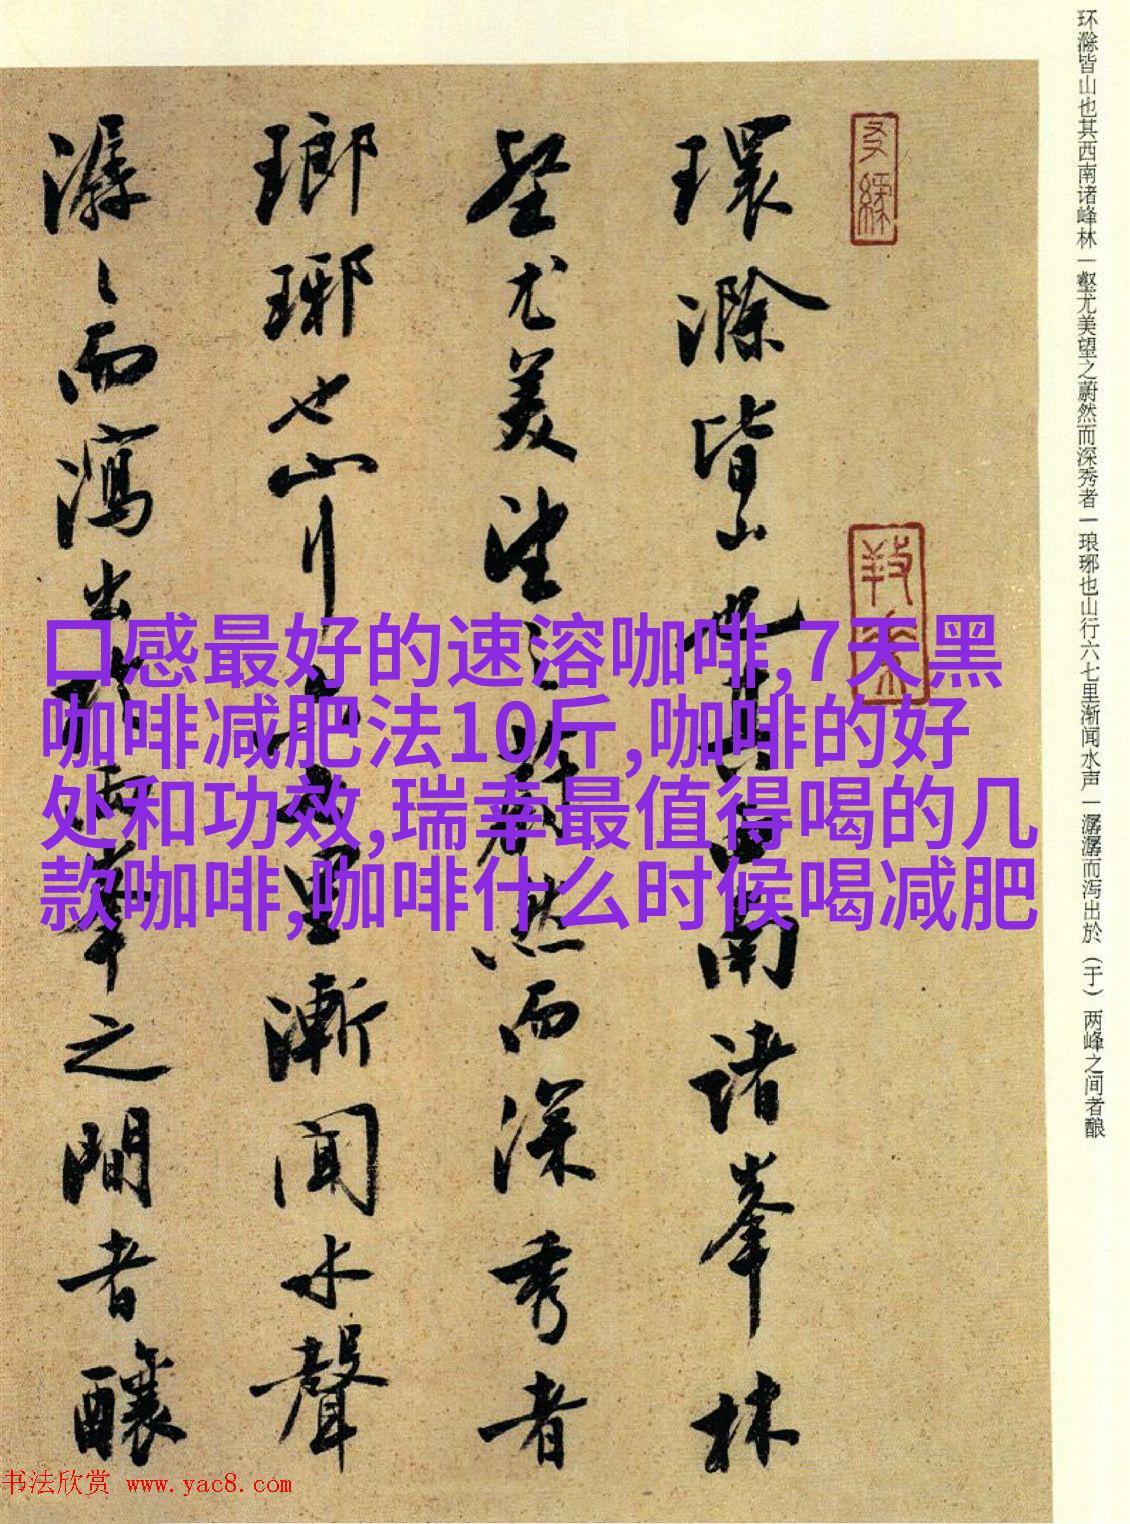 环滁皆山也其西南诸峰林一壑尤美望之蔚然而深秀者一琅琊也山行六七里渐闻水声一潺潺而泻出於（于）两峰之间者酿
環滁皆山也其西南諸峯林
壑尤美望之蔚然而深秀者
瑯琊也山行六七里漸聞水聲
潺々而瀉出於兩峯之間者釀
口感最好的速溶咖啡,7天黑
咖啡减肥法10斤,咖啡的好
处和功效,瑞幸最值得喝的几
款咖啡,咖啡什么时候喝减肥
书法欣赏 www.yac8.com